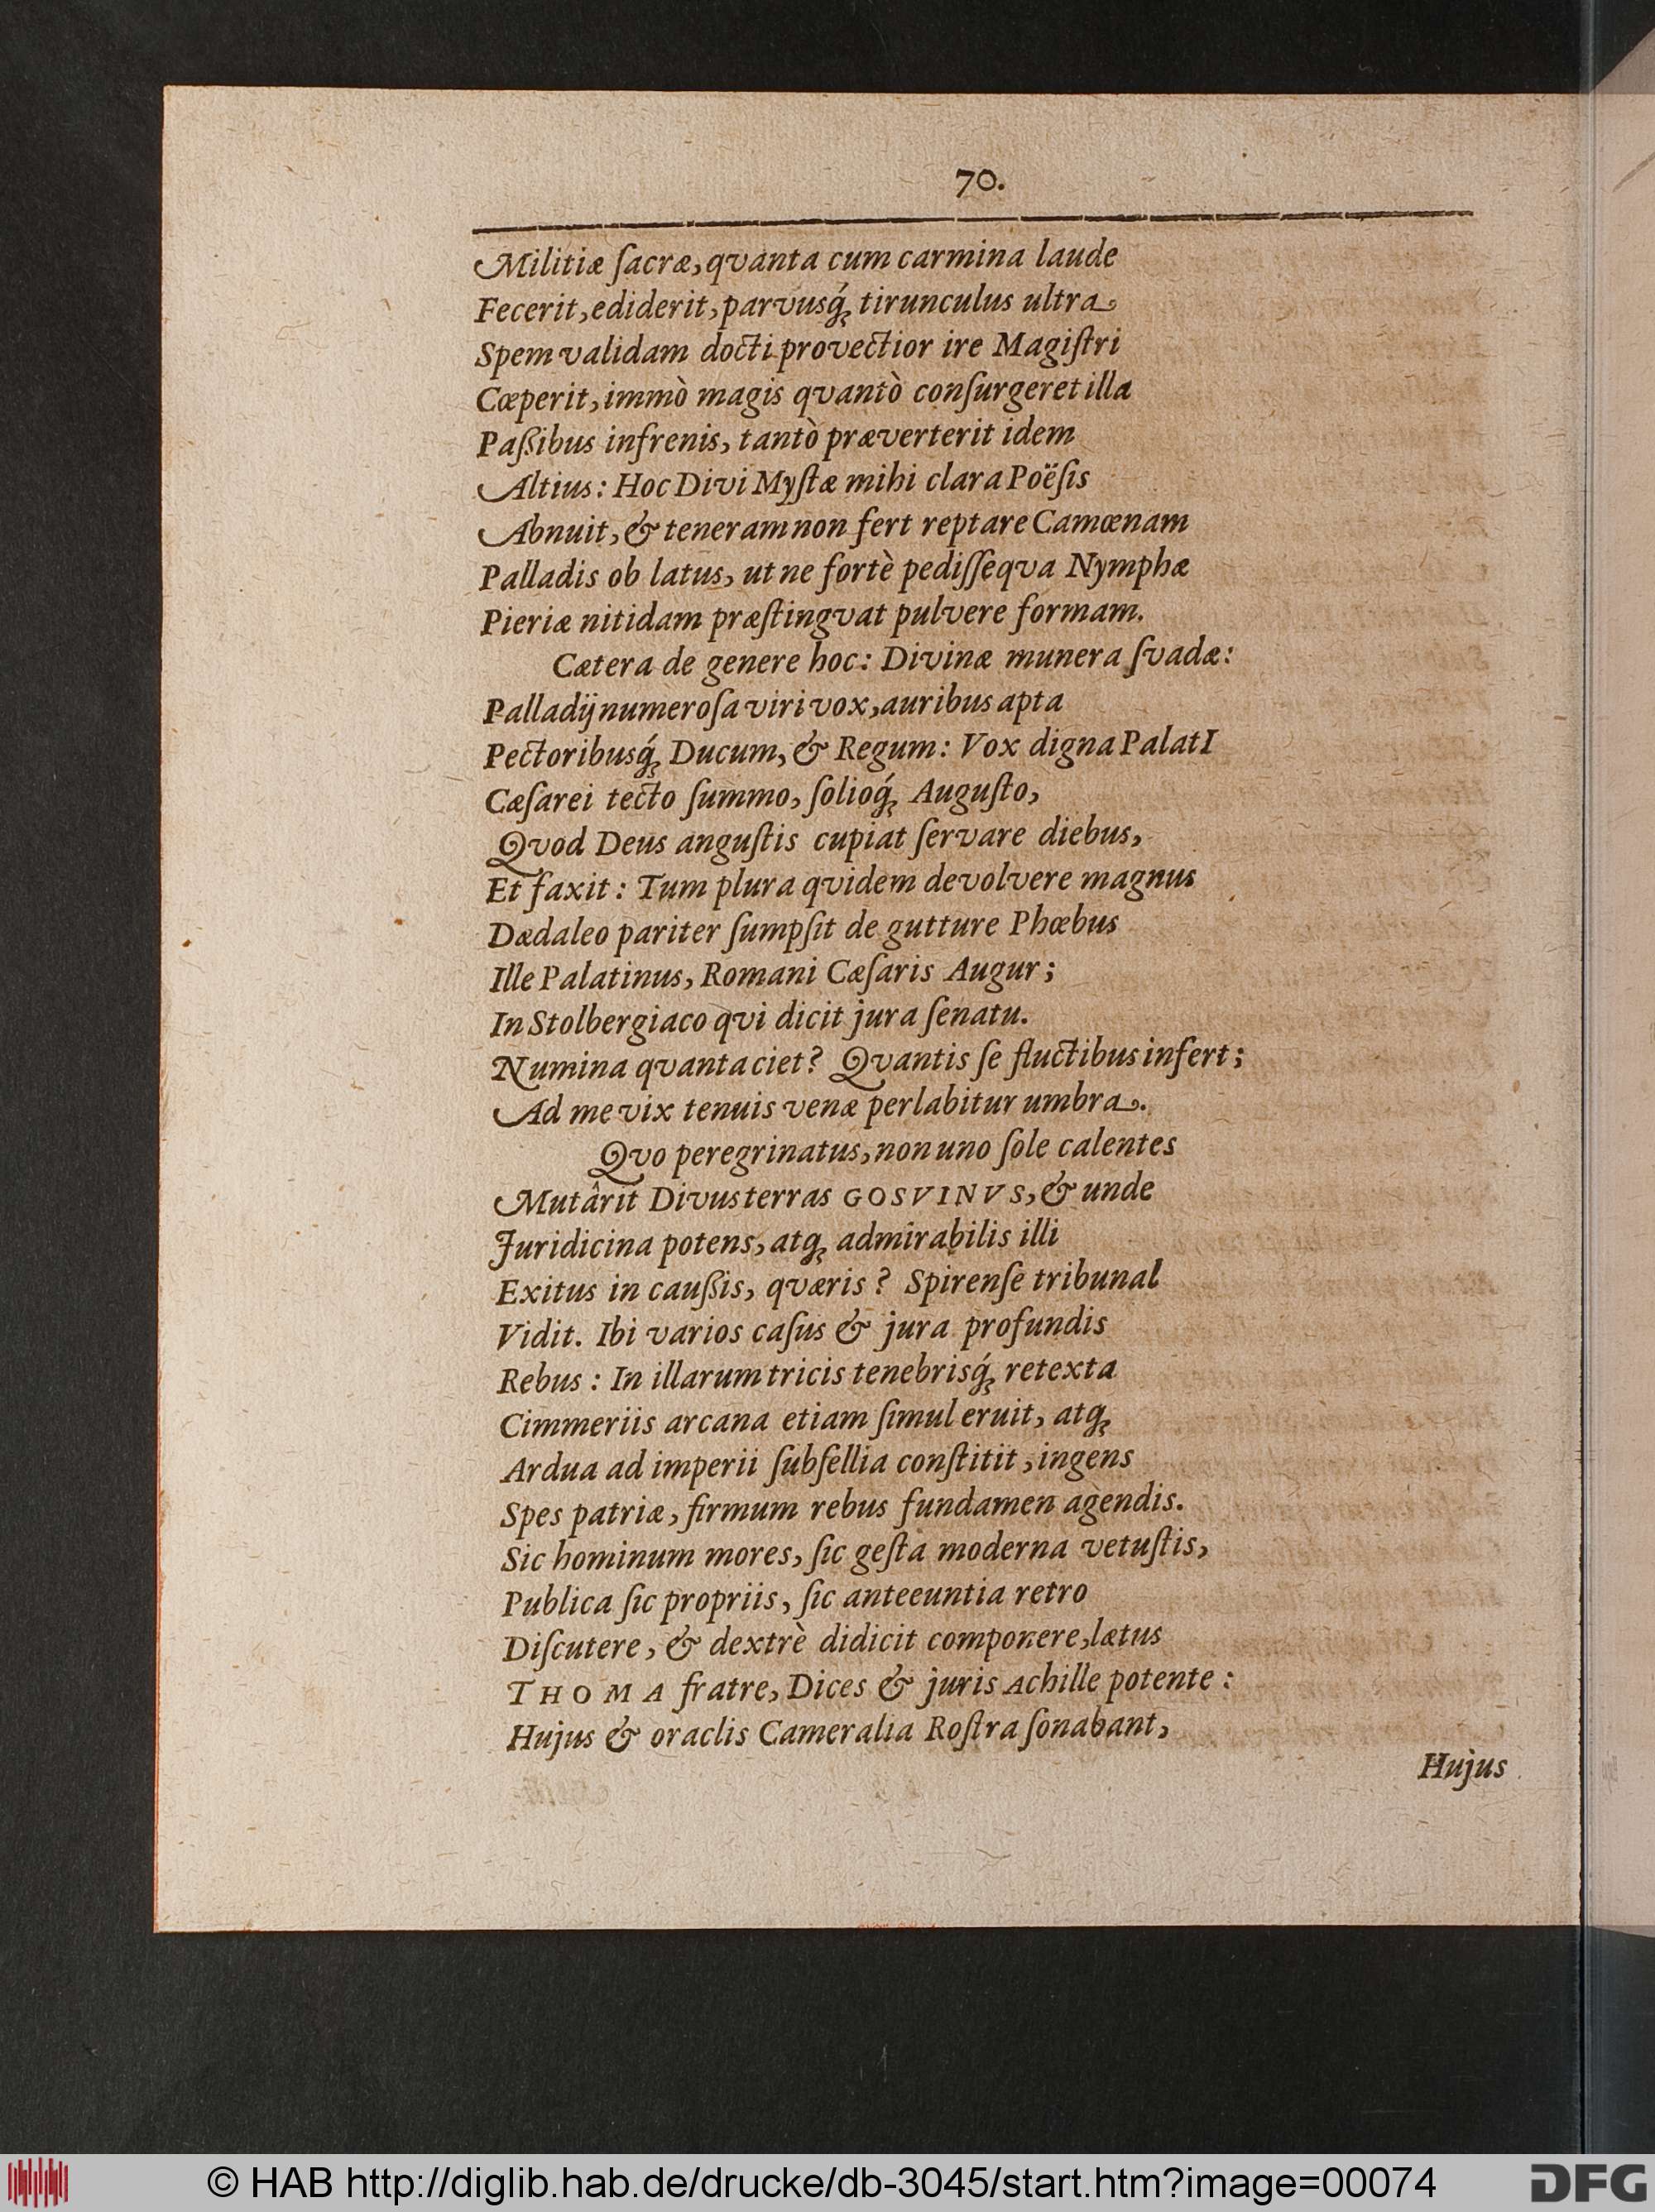 70.
Militiæ ſacræ, qvanta cum carmina laude
Fecerit, ediderit, parvusq́; tirunculus ultra
Spem validam docti provectior ire Magiſtri
Cœperit, immò magis qvantò conſurgeret illa
Paßibus infrenis, tantò præverterit idem
Altius: Hoc Divi Myſtæ mihi clara Poëſis
Abnuit, & teneram non fert reptare Camœnam
Palladis ob latus, ut ne fortè pediſſeqva Nymphæ
Pieriæ nitidam præſtingvat pulvere formam.
Cætera de genere hoc: Divinæ munera ſvadæ:
Palladij numeroſa viri vox, auribus apta
Pectoribusq́; Ducum, & Regum: Vox digna PalatI
Cæſarei tecto ſummo, ſolioq́; Auguſto,
Qvod Deus anguſtis cupiat ſervare diebus,
Et faxit: Tum plura qvidem devolvere magnus
Dædaleo pariter ſumpſit de gutture Phœbus
Ille Palatinus, Romani Cæſaris Augur;
In Stolbergiaco qvi dicit jura ſenatu.
Numina qvanta ciet? Qvantis ſe fluctibus infert;
Ad me vix tenuis venæ perlabitur umbra.
Qvo peregrinatus, non uno ſole calentes
Mutârit Divus terras GOSVINVS, & unde
Juridicina potens, atq; admirabilis illi
Exitus in caußis, qværis? Spirenſe tribunal
Vidit. Ibi varios caſus & jura profundis
Rebus: In illarum tricis tenebrisq́; retexta
Cimmeriis arcana etiam ſimul eruit, atq;
Ardua ad imperii ſubſellia conſtitit, ingens
Spes patriæ, firmum rebus fundamen agendis.
Sic hominum mores, ſic geſta moderna vetuſtis,
Publica ſic propriis, ſic anteeuntia retro
Diſcutere, & dextrè didicit componere, lætus
THOMA fratre, Dices & juris Achille potente:
Hujus & oraclis Cameralia Roſtra ſonabant,
Hujus
© HAB http://diglib.hab.de/drucke/db-3045/start.htm?image=00074
DFG